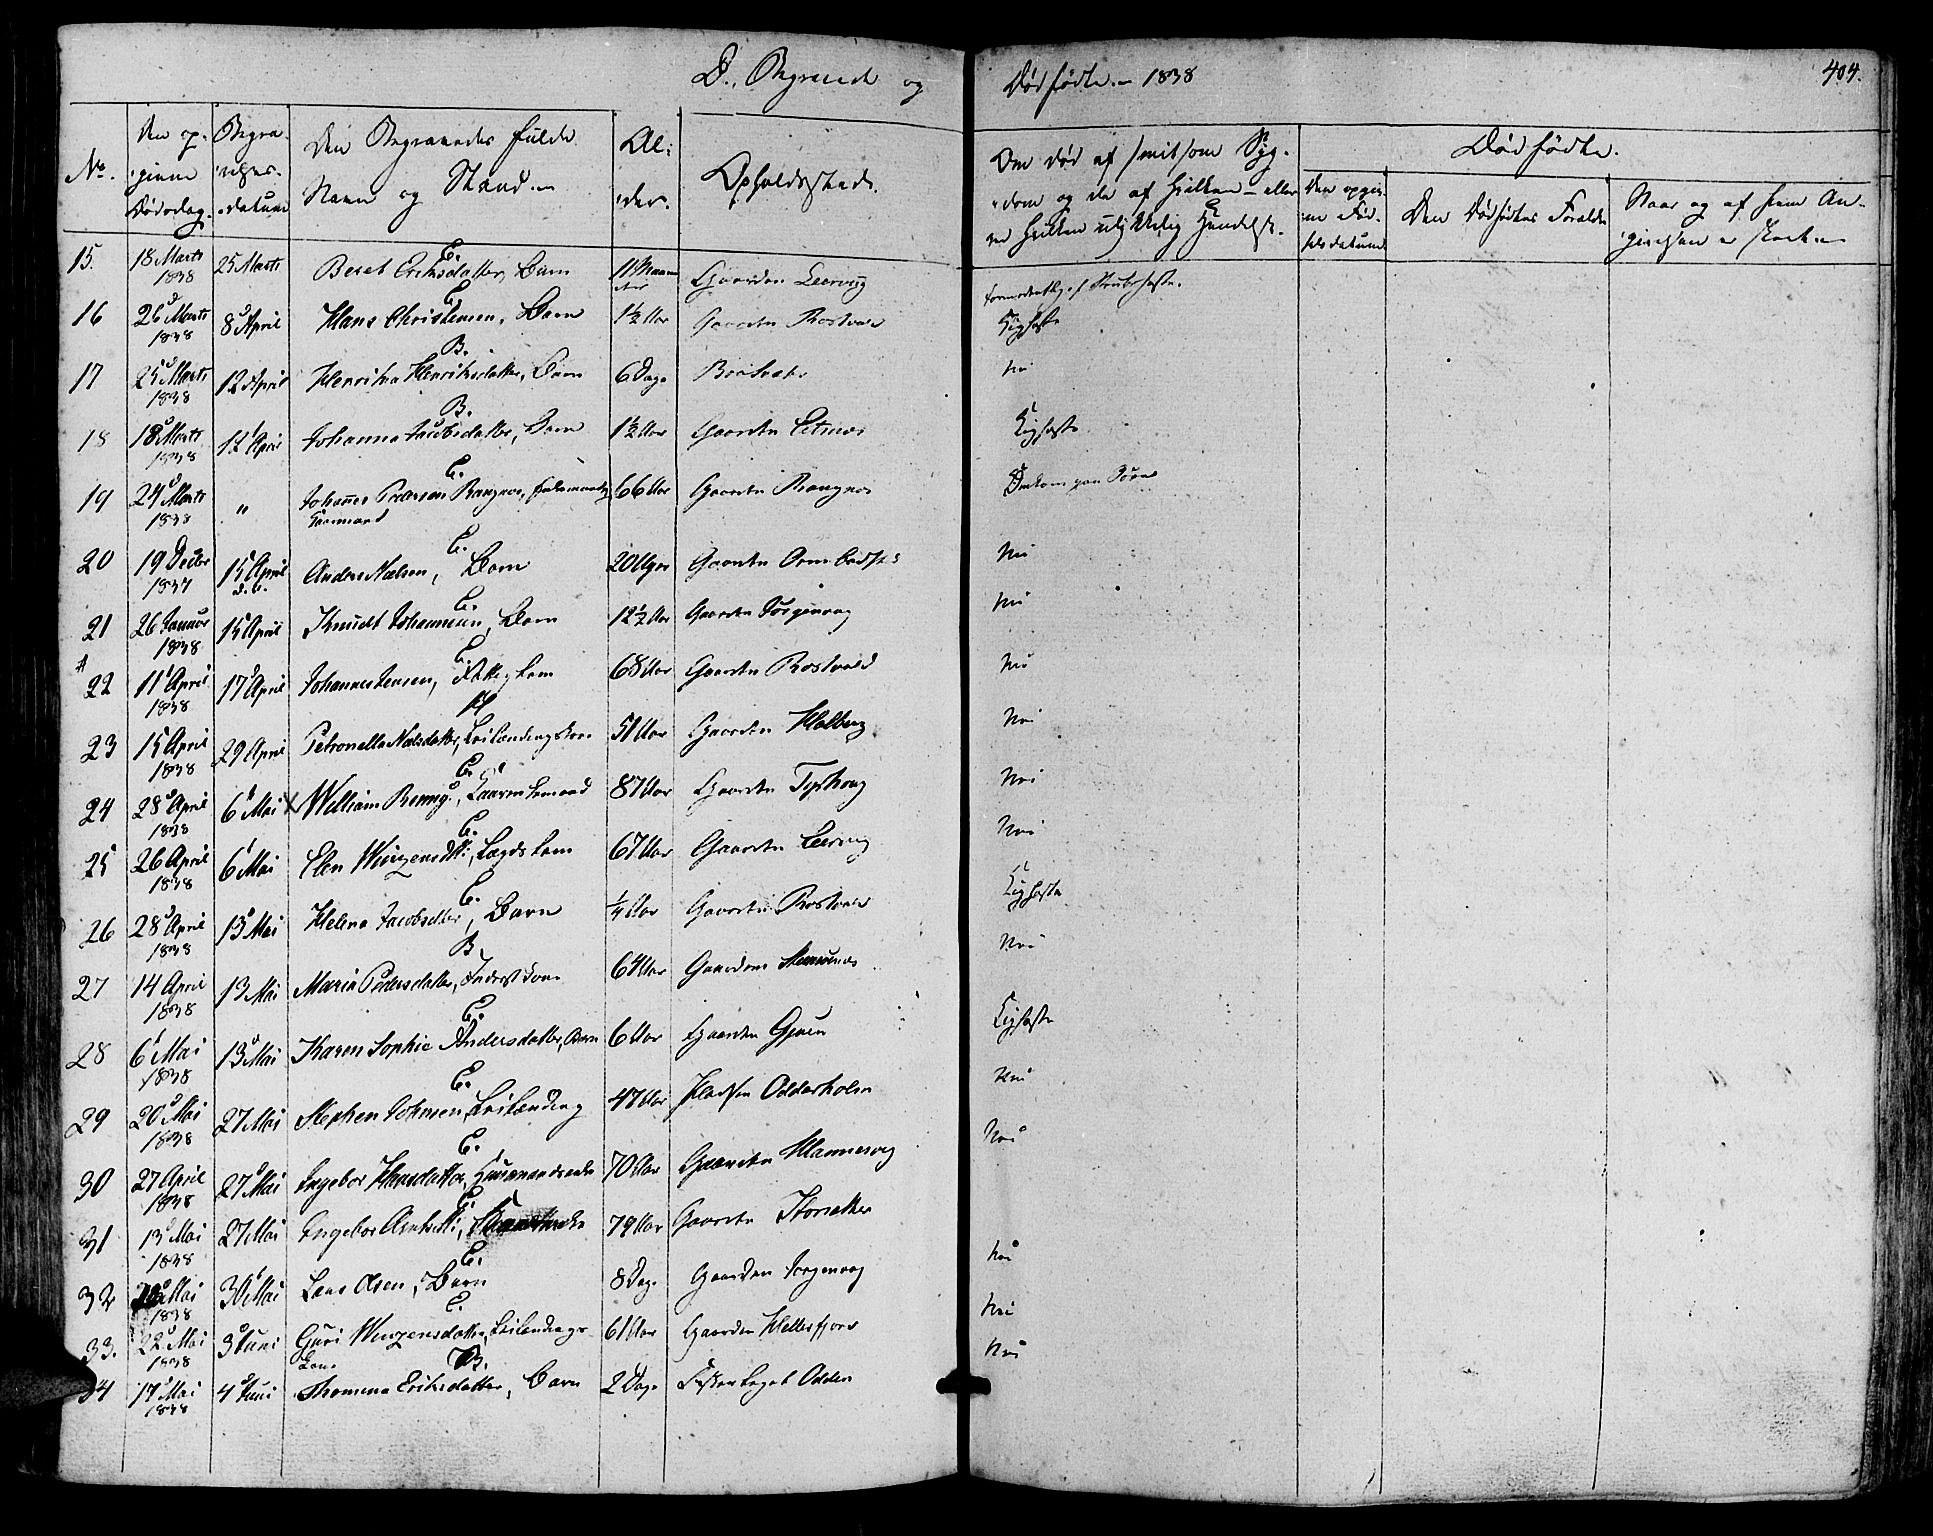 D., Begravede og Dødfødte. – 1838
404.
No. Den opgivne Dødsdag. Begravelses-datum Den Begravedes fulde Navn og Stand. Alder. Opholdssted. Om død af smitsom Sygdom og da af hvilken – eller ved hvilken ulykkelig Hændelse. Dødfødte.
Den opgivne Fødselsdatum Den Dødfødtes Forældre Naar og af hvem Angivelsen er skeet
15. 18 Marts 1838 25 Marts E. Beret Eriksdatter, Barn 11 Maaneder Gaarden Leervig
16 26 Marts 1838 8 April E. Hans Christensen, Barn 1½ Aar Gaarden Rostvold Kighoste
17 25 Marts 1838 12 April B. Henrika Henriksdatter, Barn 6 Dage Nei
18 18 Marts 1838 12 April B. Johanna Jacobsdatter, Barn 1½ Aar Gaarden Kighoste
19 24 Marts 1838 " E. Johannes Pedersen Rangnes, Gaarmand 66 Aar Gaarden Rangnes Omkom paa Søen
20 19 Decbr 1837 15 April E. Anders Nielsen, Barn 20 Uger Gaarden Nei
21 26 Januar 1838 15 April E. Knudt Johannesen, Barn 12½ Aar Gaarden Sørgenvaag Nei
22 11 April 1838 17 April E. Johannes Jensen, Lægdslem 68 Aar Gaarden Rostvold Nei
23 15 April 1838 29 April H Petronella Nielsdatter, Leilændingskone 51 Aar Gaarden Holberg Nei
24 28 April 1838 6 Mai E. × William Benny, Kaarmand 87 Aar Gaarden Tyshoug Nei
25 26 April 1838 6 Mai E. Elen Wingensdtr, Lægdslem 67 Aar Gaarden Leervig Nei
26 28 April 1838 13 Mai E. Helena Jacobsdtter, Barn ¼ Aar Gaarden Rostvold Kighoste
27 14 April 1838 13 Mai B. Maria Pedersdatter, Inderstkone 64 Aar Gaarden Nei
28 6 Mai 1838 13 Mai E. Karen Sophie Andersdatter, Barn 6 Aar Gaarden Gjøen Kighoste
29 20 Mai 1838 27 Mai E. Stephen Johnsen, Leilænding 47 Aar Pladsen Odderholm Nei
30 27 April 1838 27 Mai E. Ingebor Hansdatter, Huusmandsenke 70 Aar Gaarden Hannesvig Nei
31 13 Mai 1838 27 Mai E. Ingebor 79 Aar Gaarden
32 Mai 1838 30 Mai E. Lars Olsen, Barn 8 Dage Gaarden Sørgenvaag Nei
33. 22 Mai 1838 3 Juni E. Guri Wingensdatter, Leilændings-Kone 61 Aar Gaarden Hellesfjord Nei
34 17 Mai 1838 4 Juni B. Thomena Eriksdatter, Barn 2 Dage Fiskerleyet Odden Nei